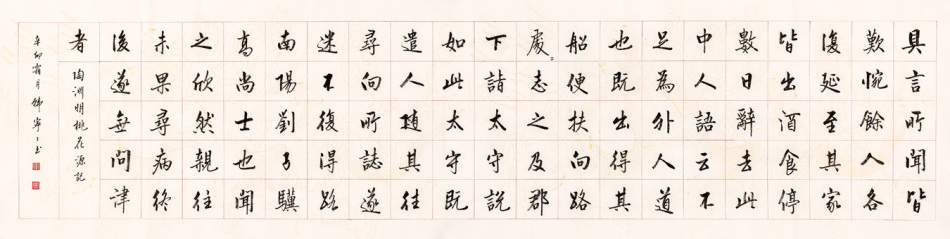 具言所聞皆
歎惋餘人各
復延至其家
皆出酒食停
數日辭去此
中人語云不
足為外人道
也既出得其
船便扶向路
處々志之及郡
下詣太守說
如此太守既
遣人隨其往
尋向所誌遂
迷不復得路
南陽劉子驥
高尚士也聞
之欣然親往
未果尋病終
後遂無問津
者 陶淵明桃花源記
辛卯霜月